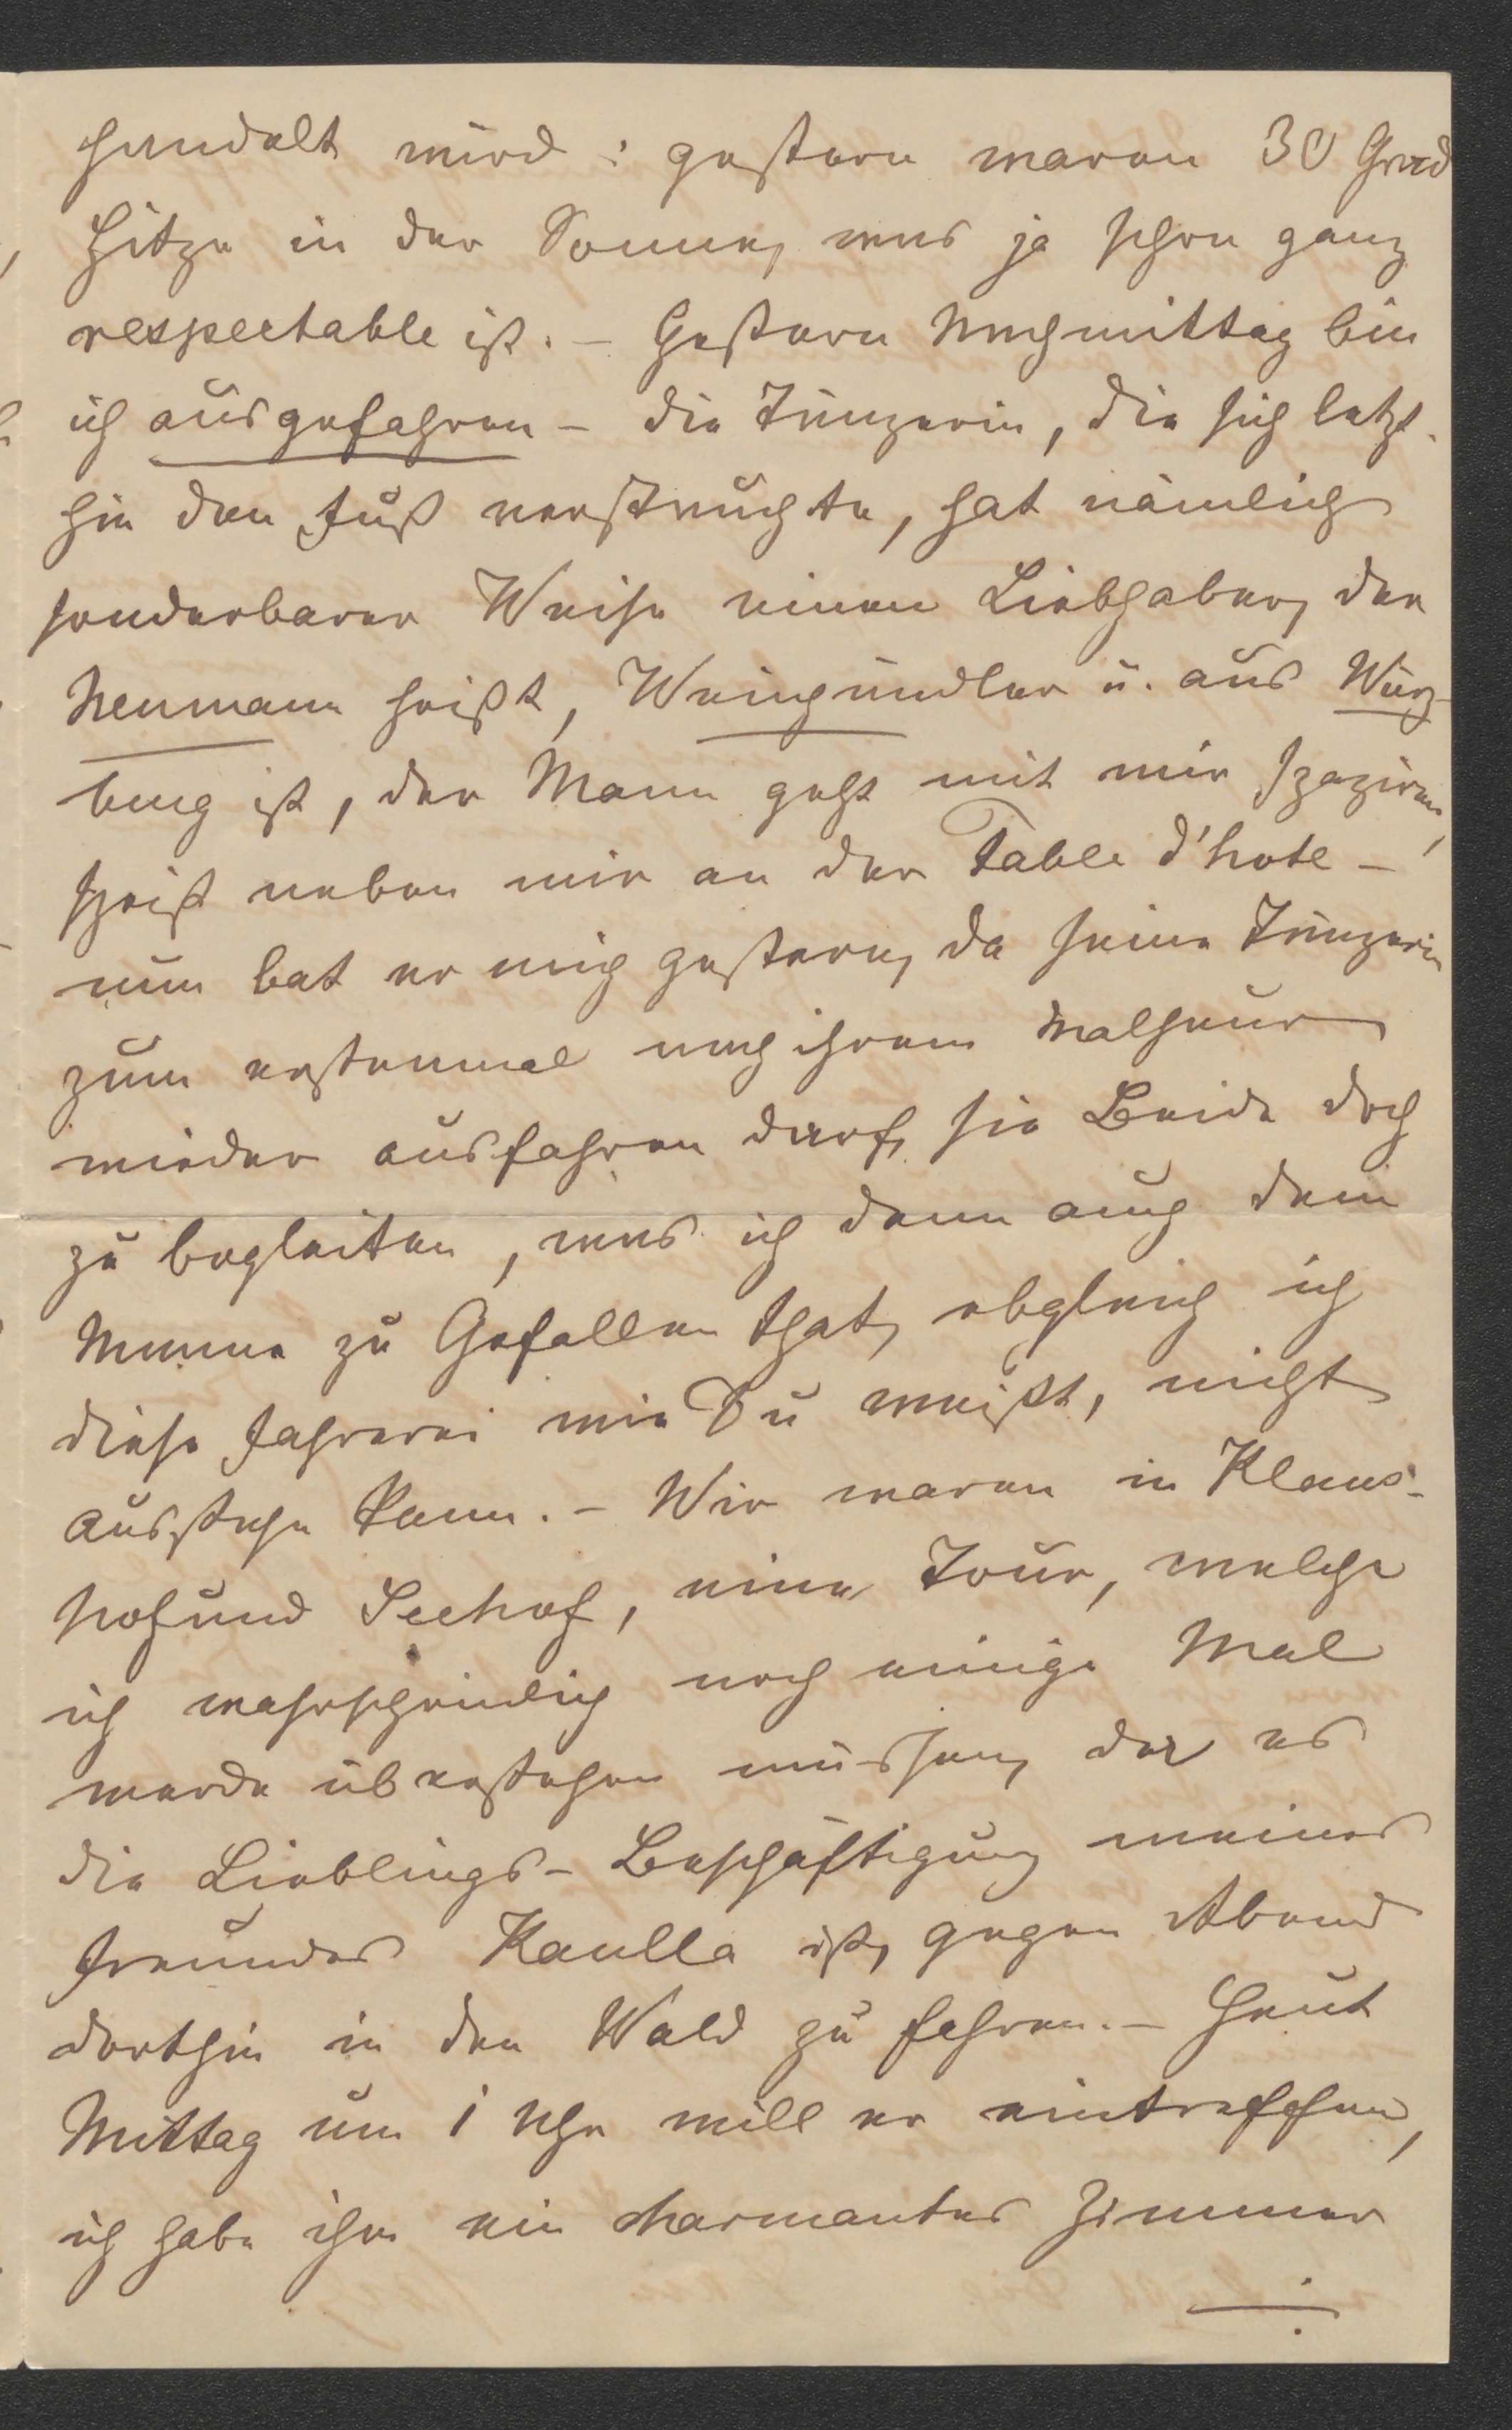 handelt wird: gestern waren 30 Grad
Hitze in der Sonne, was ja schon ganz
respectable ist. – Gestern Nachmittag bin
ich ausgefahren – die Tänzerin, die sich letzt-
hin den Fuß verstauchte, hat nämlich
sonderbarer Weise einen Liebhaber, der
Neumann heißt, Weinhändler u. aus Würz-
burg ist, der Mann geht mit mir spaziren,
speist neben mir an der Table d'hote –
nun bat er mich gestern, da seine Tänzerin
zum erstenmal nach ihrem Malheur
wieder ausfahren darf, sie Beide doch
zu begleiten, was ich denn auch dem
Manne zu Gefallen that, obgleich ich
diese Fahrerei wie Du weißt, nicht
ausstehn kann. – Wir waren in Klaus-
hof und Seehof, eine Tour, welche
ich wahrscheinlich noch einige Mal
werde überstehen müssen, da es
die Lieblings-Beschäftigung meines
Freundes Kaulla ist, gegen Abend
dorthin in den Wald zu fahren. – Heut
Mittag um 1 Uhr will er eintreffen,
ich habe ihm ein charmantes Zimmer